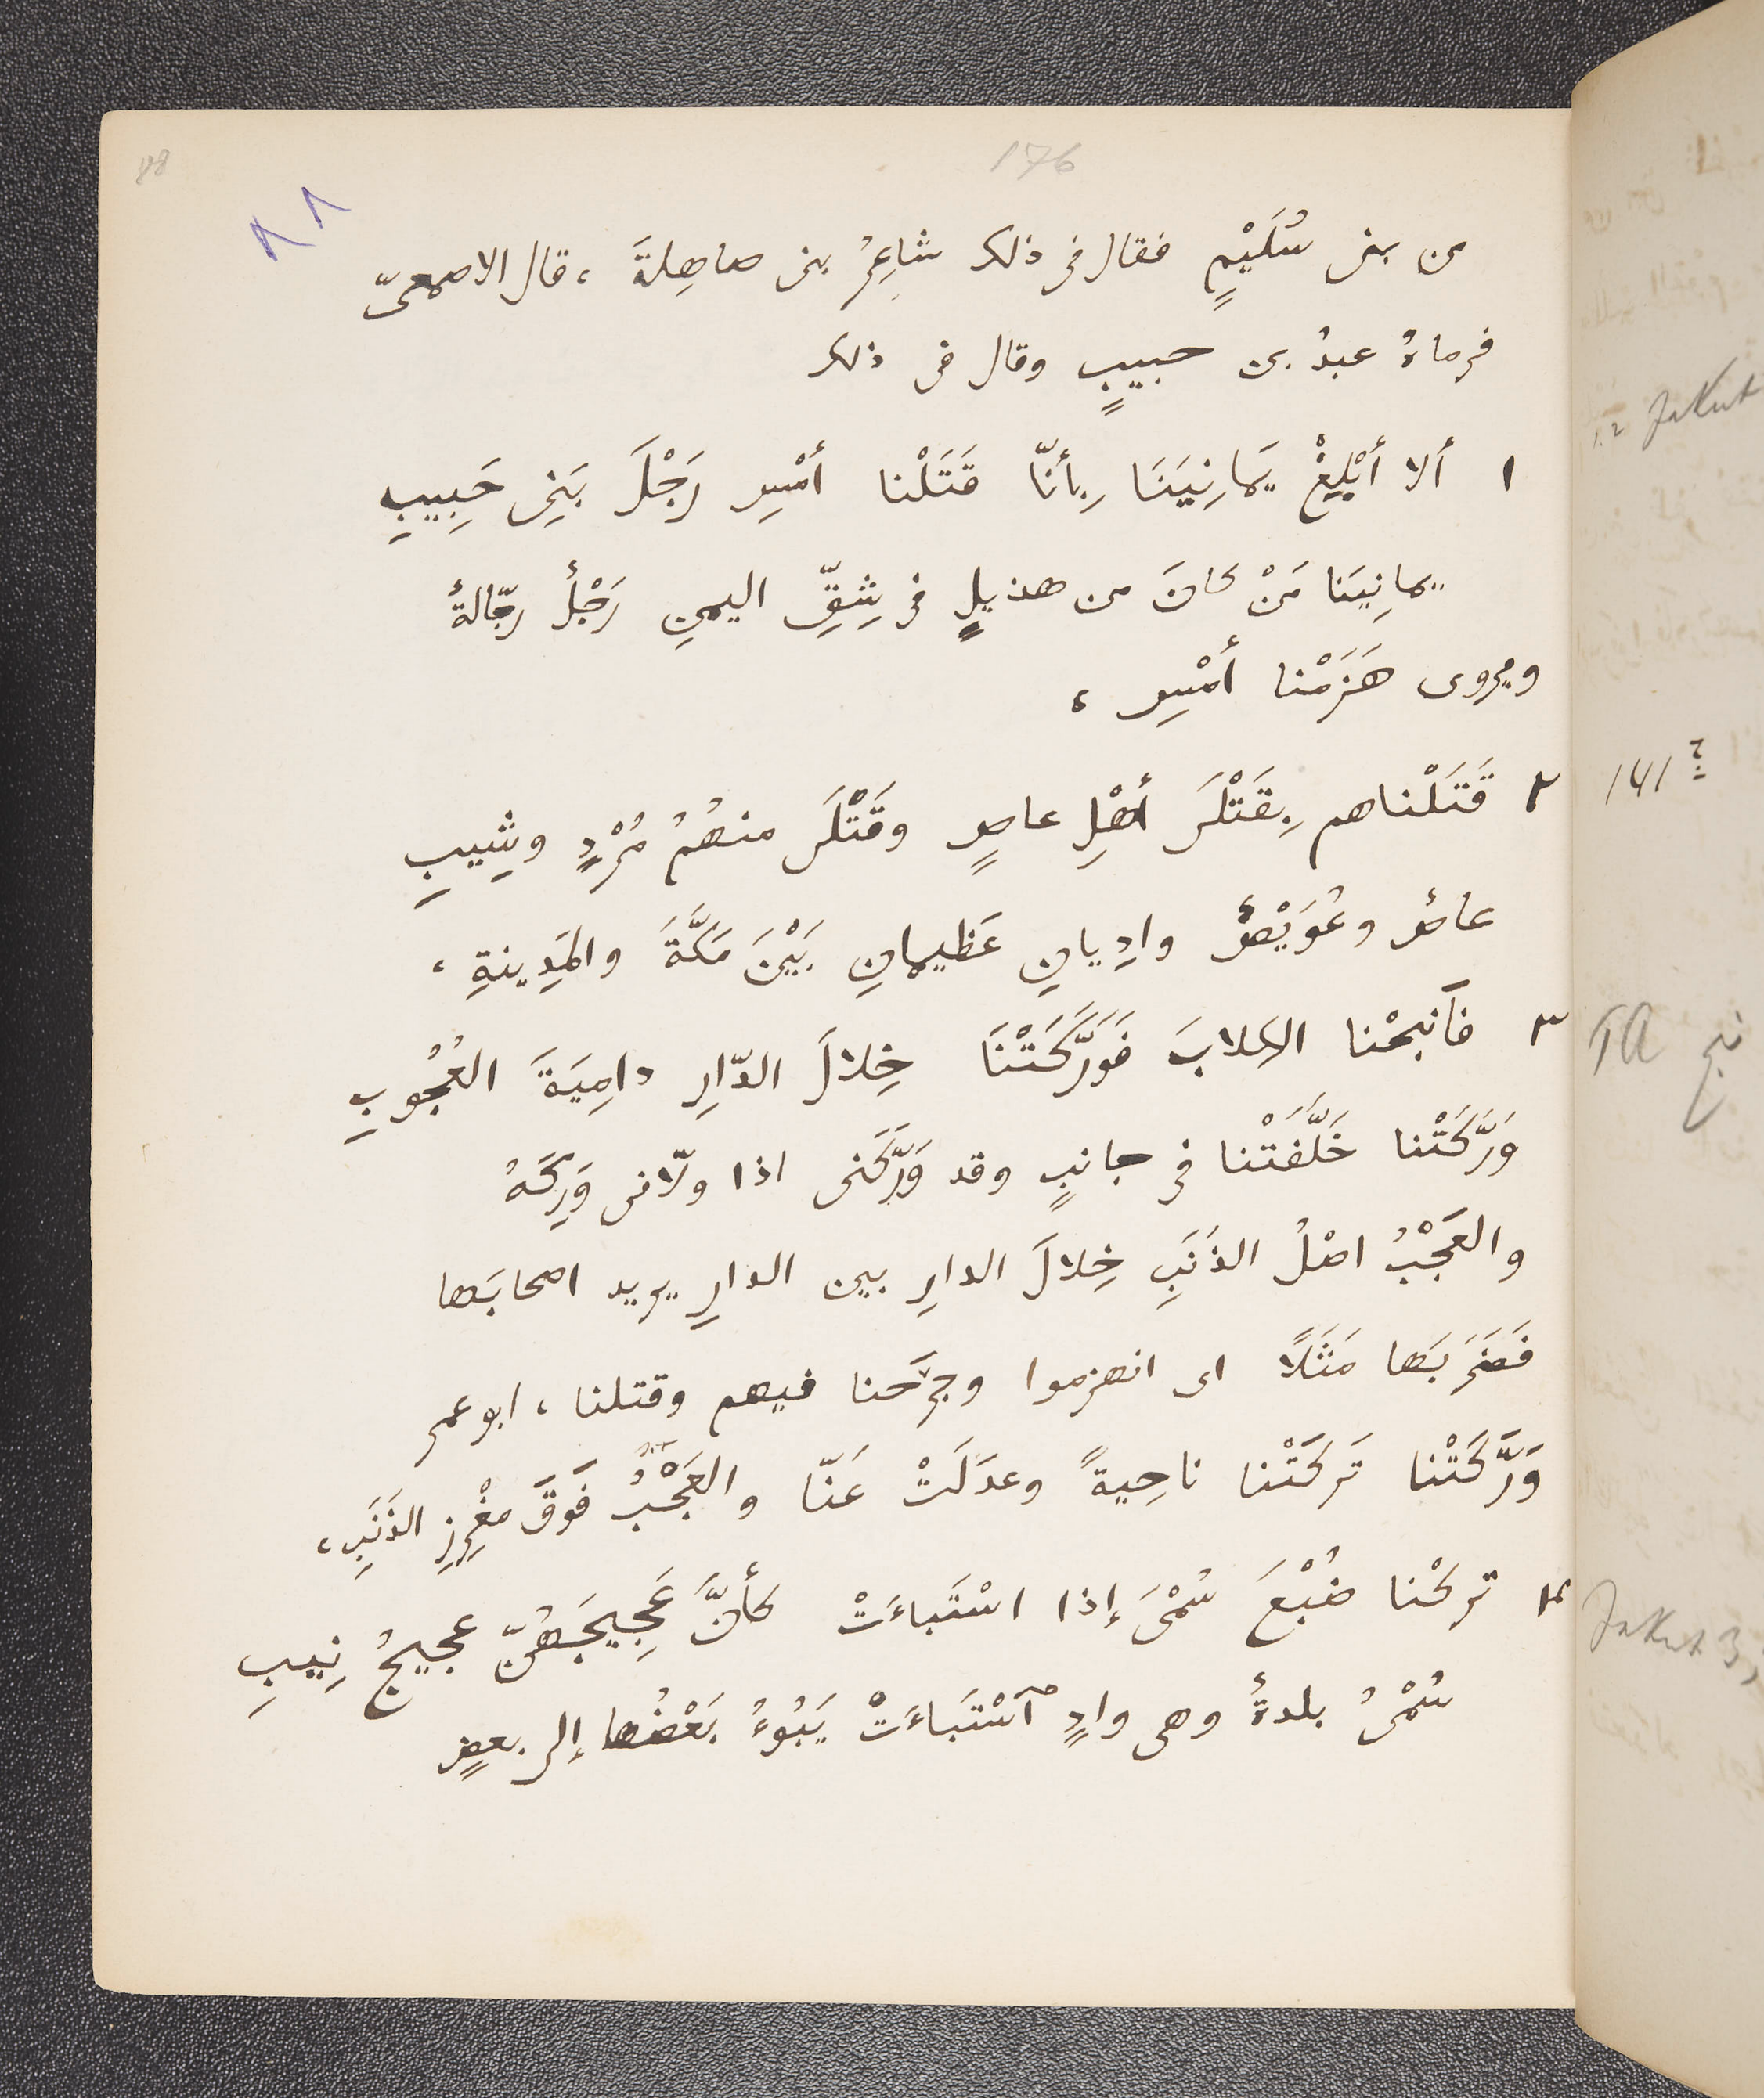 176
88
٨٨
من بنى سُلَيْمٍ فقال فى ذلك شاعِرُ بنى صاهِلةَ ، قال الاصمعىّ
فرماهُ عبدُ بن حبيبٍ وقال فى ذلك
١ ألا أَبْلِغْ يَمانِيَنَا بِأنّا قَتَلْنا أمْسِ رَجْلَ بَنِى حَبِيبِ
يمانِيَنا مَنْ كانَ من هذيلٍ فى شِقِّ اليمنِ رَجْلٌ رجّالةٌ
ويروى هَزَمْنا أمْسِ ،
٢ قَتَلْناهم بِقَتْلَى أهْلِ عاصٍ وقَتْلَى منهُمُ مُرْدٍ وشِيبِ
عاصٌ وعُوَيْصٌ وادِيانِ عَظيمانِ بَيْنَ مَكَّةَ والمَدِينةِ ،
٣ فأنبحْنا الكِلابَ فَوَرَّكَتْنَا خِلالَ الدّارِ دامِيَةَ العُجُوبِ
وَرَّكَتْنا خَلَّفَتْنا فى جانبٍ وقد وَرَّكَنى اذا ولّانى وَرِكَهُ
والعَجْبُ اصْلُ الذَنَبِ خِلالَ الدارِ بين الدارِ يريد اصحابَها
فَضَرَبَها مَثَلًا اى انهزموا وجرَحنا فيهم وقتلنا ، ابو عمر
وَرَّكَتْنا تَرَكَتْنا ناحِيةً وعدَلَتْ عَنّا والعَجْبُ فَوقَ مغْرِزِ الذَنَبِ ،
٤ تركْنا ضُبْعَ سُمْىَ إذا اسْتَباءَتْ كأنَّ عَجِيجَهُنّ عجيجُ نِيبِ
سُمْىُ بلدةٌ وهى وادٍ ٱسْتَباءَتْ يَبُوءُ بَعْضُها إلى بعضٍ
Jakut
141 ?
TA نبح
Jakut 3,